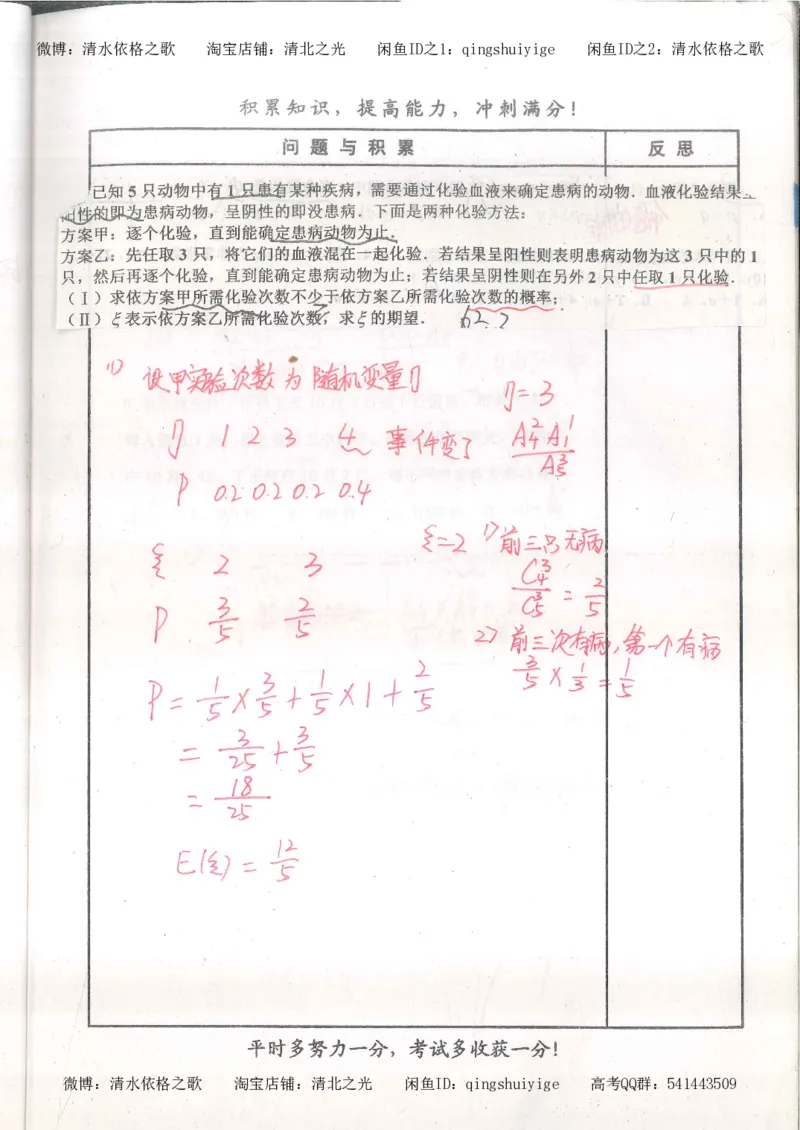 微博：清水依格之歌 淘宝店铺：清北之光 闲鱼ID之1：qingshuiyige 闲鱼ID之2：清水依格之歌
积累知识，提高能力，冲刺满分！
问题与积累 反思
已知 5 只动物中有 1 只患有某种疾病，需要通过化验血液来确定患病的动物．血液化验结果
阳性的即为患病动物，呈阴性的即没患病．下面是两种化验方法：
方案甲：逐个化验，直到能确定患病动物为止．
方案乙：先任取 3 只，将它们的血液混在一起化验．若结果呈阳性则表明患病动物为这 3 只中的 1
只，然后再逐个化验，直到能确定患病动物为止；若结果呈阴性则在另外 2 只中任取 1 只化验．
（Ⅰ）求依方案甲所需化验次数不少于依方案乙所需化验次数的概率；
（Ⅱ）ξ表示依方案乙所需化验次数，求ξ的期望．
1) 设甲实验次数为随机变量η
η=3
η 1 2 3 4 事件变了 A₄²A₁¹/A₅³
P 0.2 0.2 0.2 0.4
ξ=2 1) 前三只无病
ξ 2 3 C₄³/C₅³ = 2/5
P 3/5 2/5
2) 前三次有病，第一个有病
3/5 × 1/3 = 1/5
P = 1/5 × 3/5 + 1/5 × 1 + 2/5
= 3/25 + 3/5
= 18/25
E(ξ) = 12/5
平时多努力一分，考试多收获一分！
微博：清水依格之歌 淘宝店铺：清北之光 闲鱼ID：qingshuiyige 高考QQ群：541443509